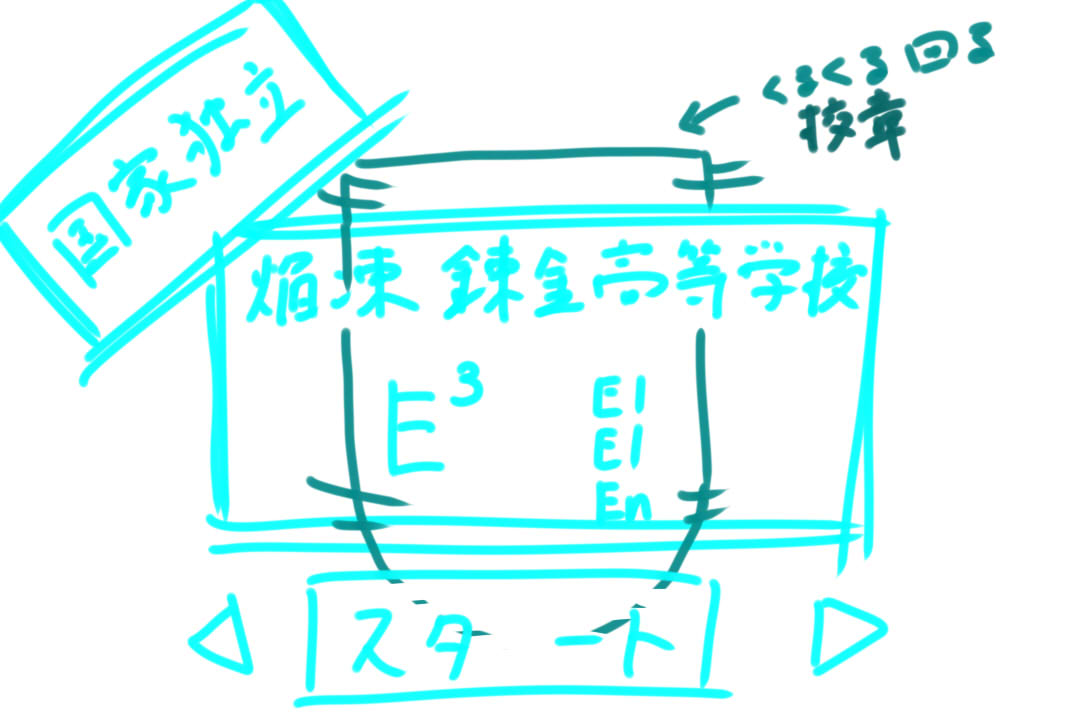 国家独立
くるくる回る
校章
焔凍錬金高等学校
E³
El
El
En
スタート